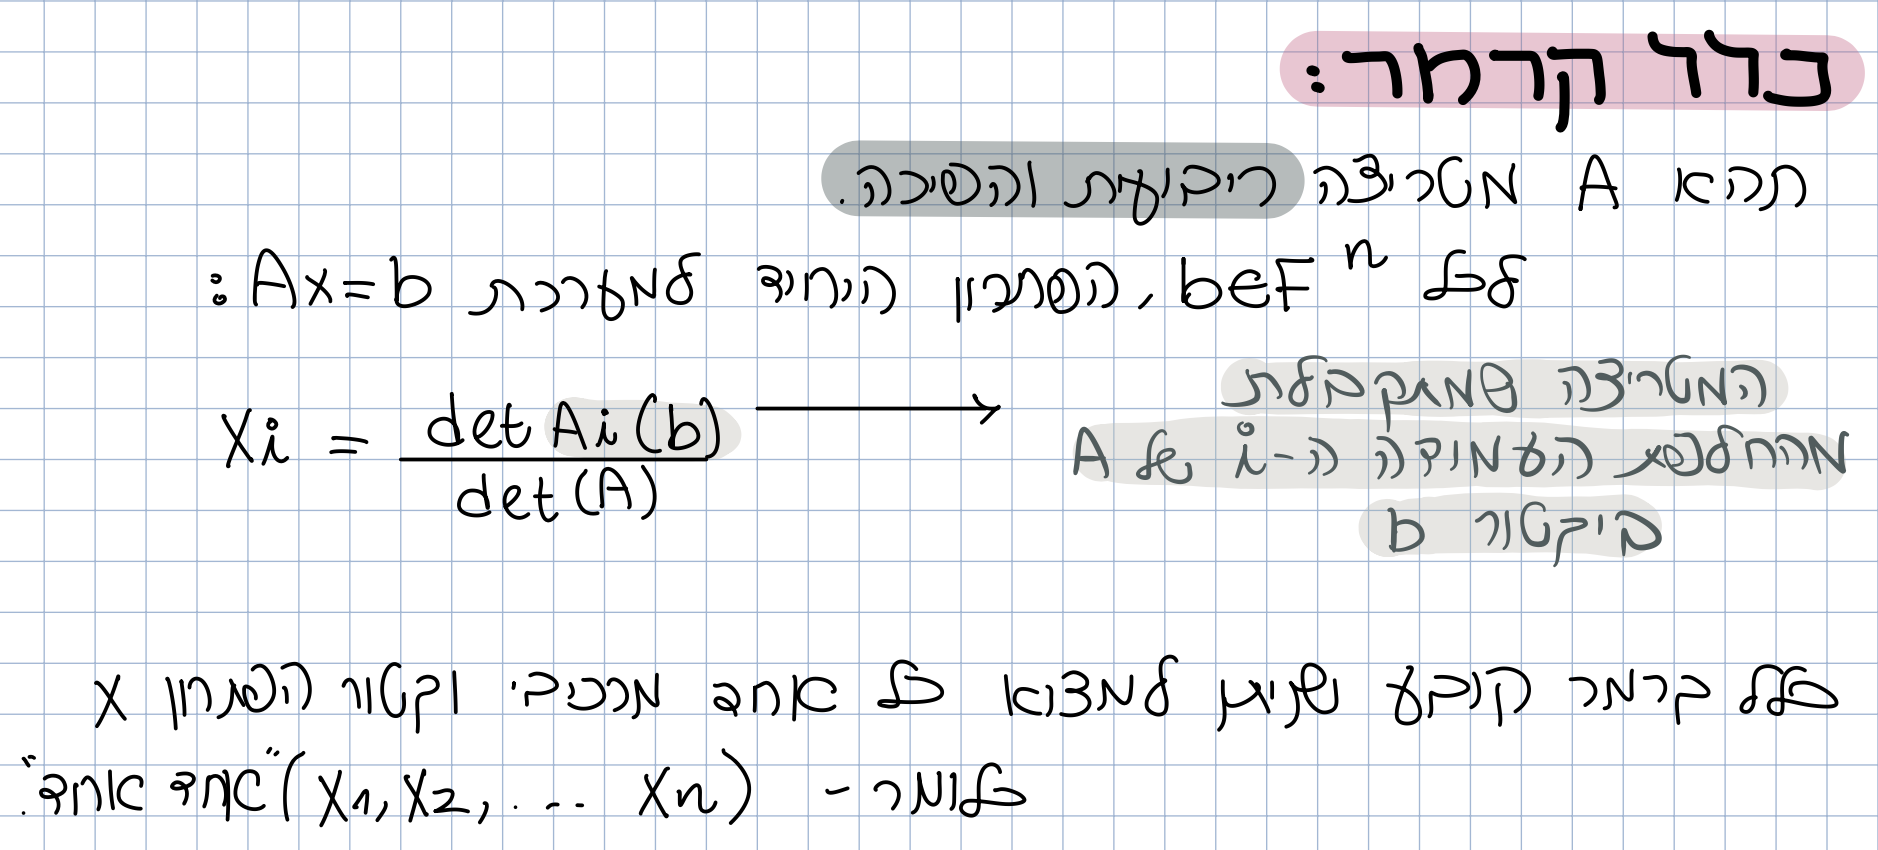 כלל קרמר:
תהא A מטריצה ריבועית והפיכה.
לכל b∈Fⁿ, הפתרון היחיד למערכת Ax=b:
המטריצה שמתקבלת
מהחלפת העמודה ה-i של A
בוקטור b
xi = det Ai(b) / det(A) →
כלל קרמר קובע שניתן למצוא כל אחד מרכיבי וקטור הפתרון x
כלומר - (x1, x2, ... xn) "אחד אחד".